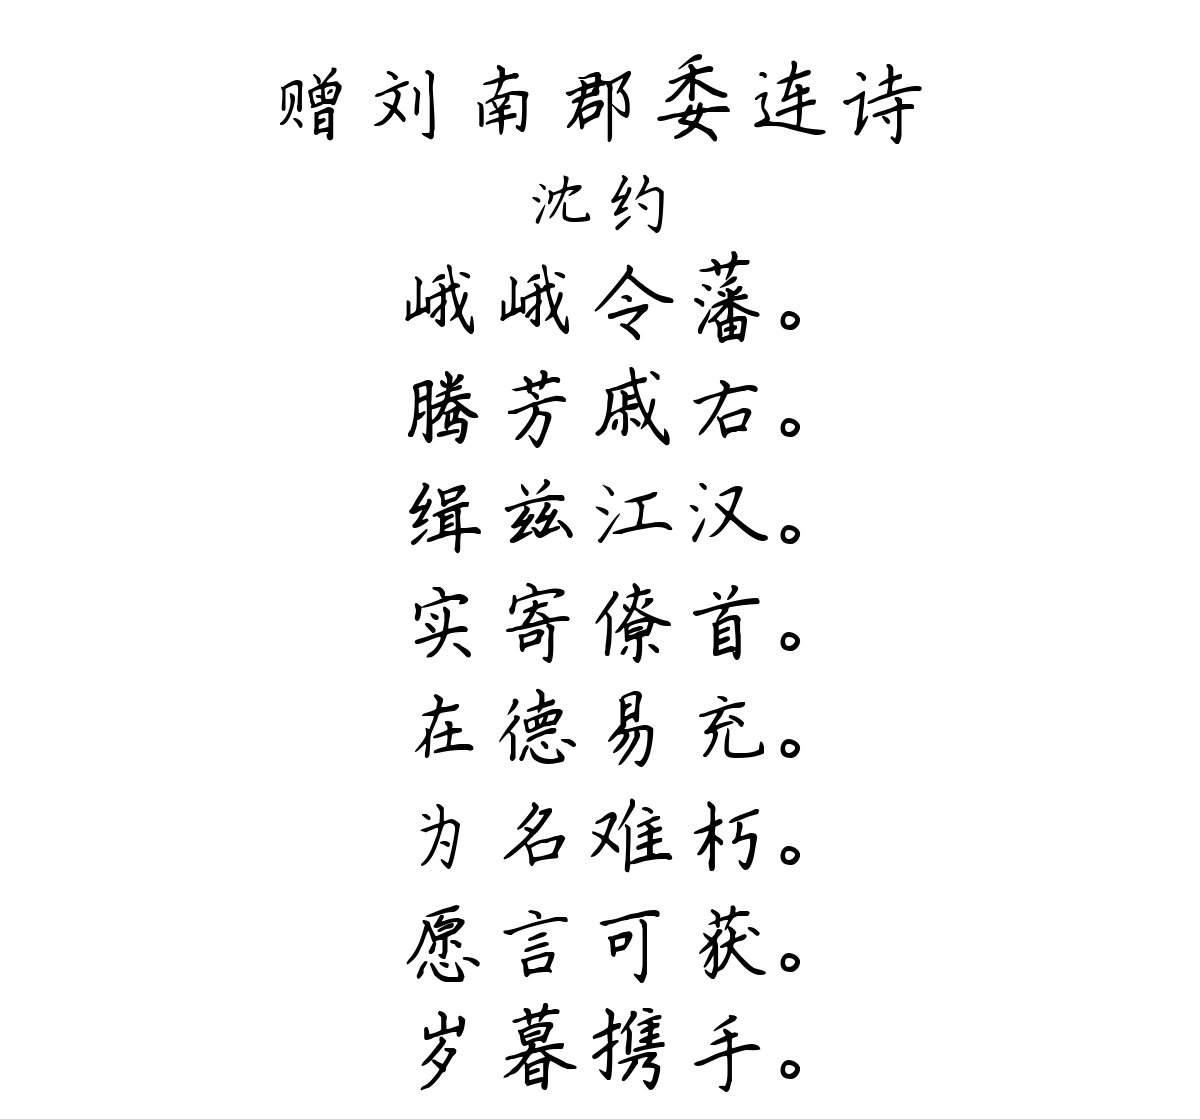 赠刘南郡委连诗
沈约
峨峨令藩。
腾芳戚右。
缉兹江汉。
实寄僚首。
在德易充。
为名难朽。
愿言可获。
岁暮携手。